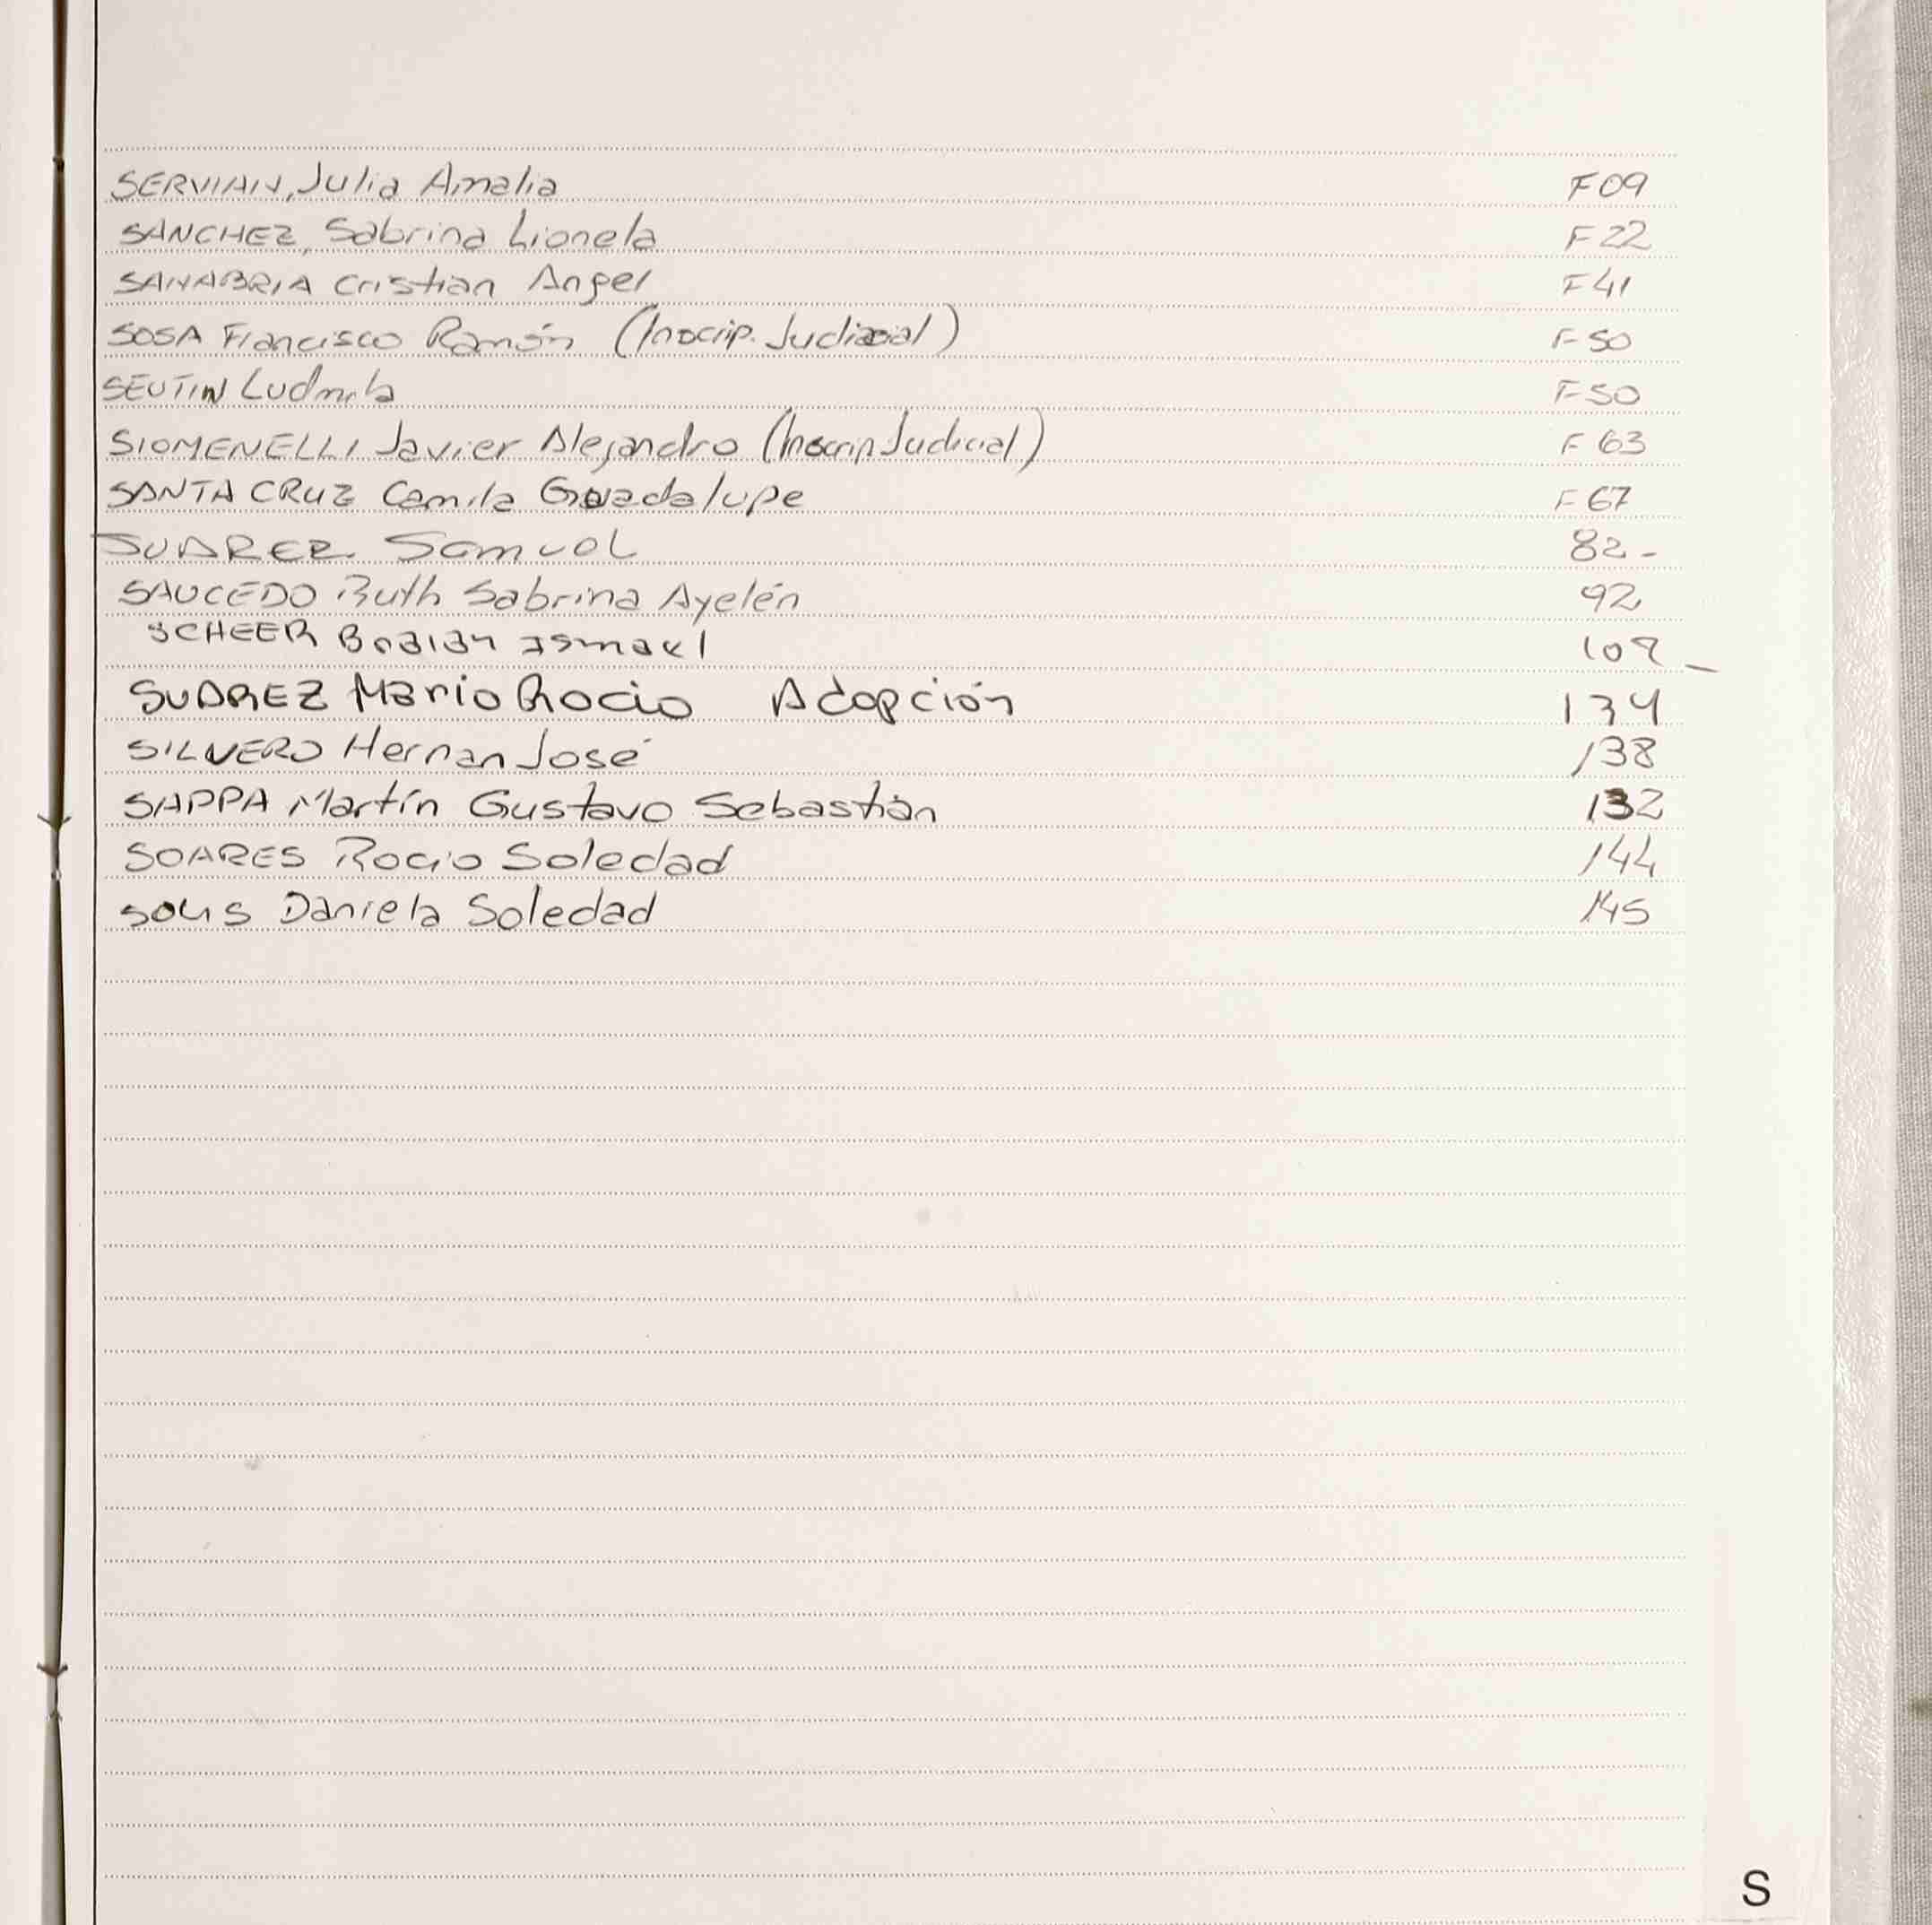 SERVIAN, Julia Amalia F 09
SANCHEZ, Sabrina Lionela F 22
SANABRIA Cristian Angel F 41
SOSA Francisco Ramón (Inscrip. Judicial) F 50
SEUTIN Ludmila F 50
SIOMENELLI Javier Alejandro (Inscrip Judicial) F 63
SANTA CRUZ Camila Guadalupe F 67
SUAREZ Samuel 82-
SAUCEDO Ruth Sabrina Ayelén 92
SCHEER Braian Ismael
SUAREZ Mario Rocio Adopción 134
SILVERO Hernan José 138
SAPPA Martín Gustavo Sebastián 132
SOARES Rocio Soledad 144
SOLIS Daniela Soledad 145
S